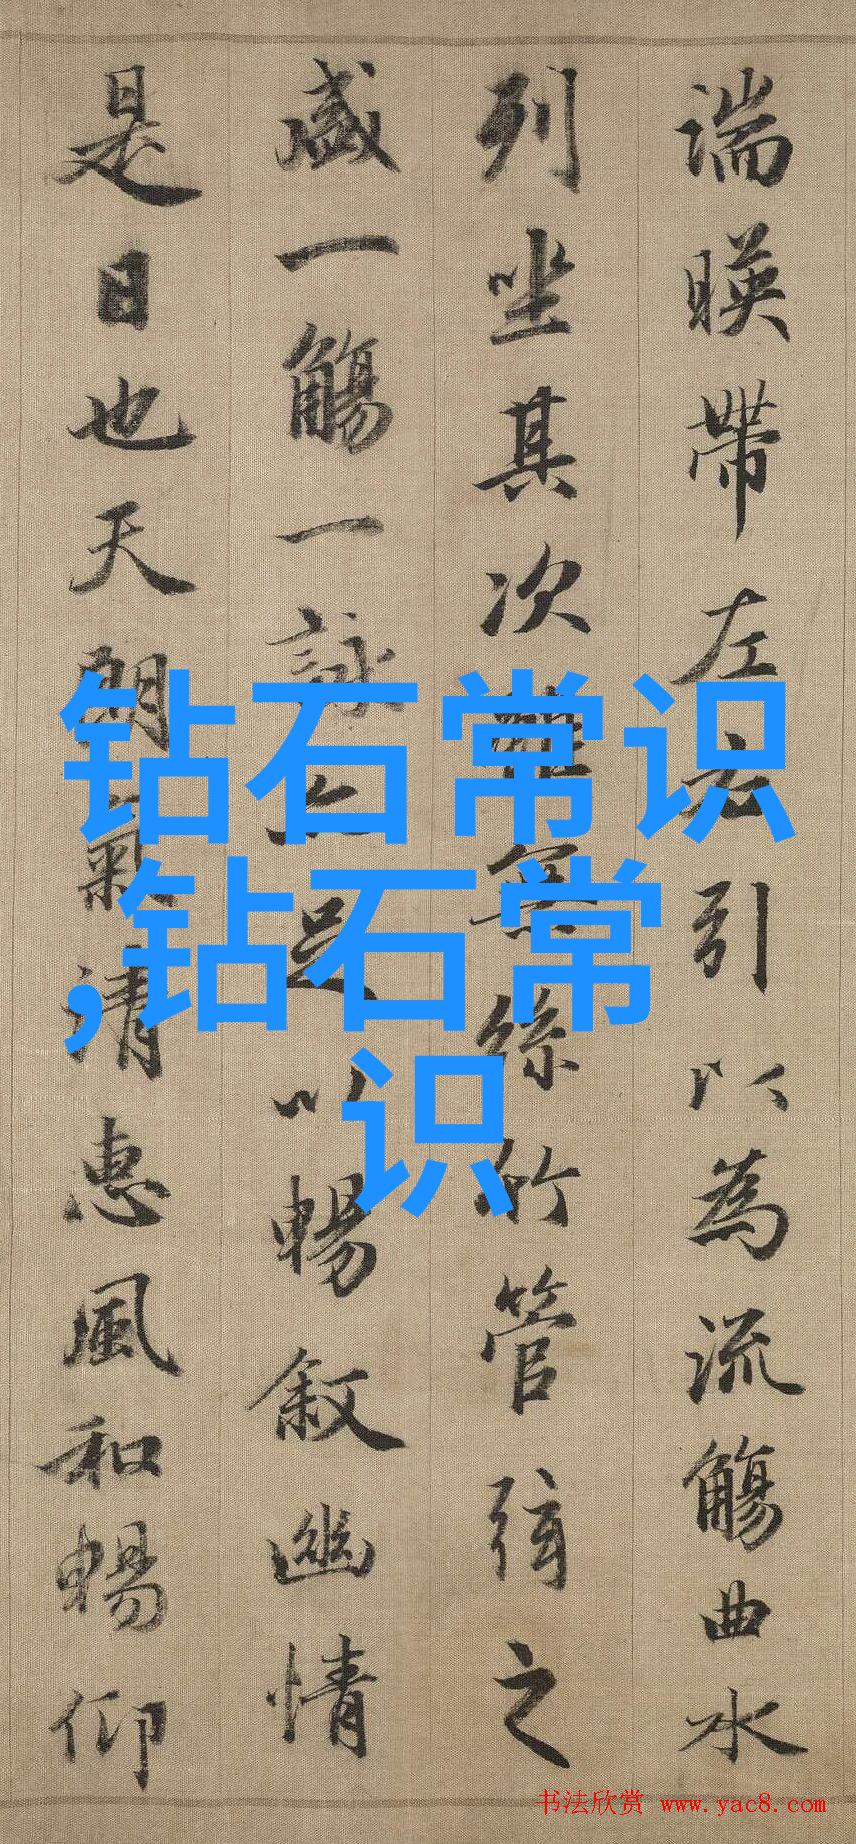 湍暎帶左右引以為流觴曲水
列坐其次雖無絲竹管弦之
盛一觴一詠亦足以暢叙幽情
是日也天朗氣清惠風和暢仰
钻石常识
,钻石常
识
书法欣赏 www.yac8.com